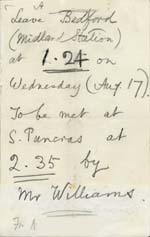 Leave Bedford
(Midland Station)
at 1.24 on
Wednesday (Aug. 17).
To be met at
S. Pancras at
2.35 by
Mr Williams.